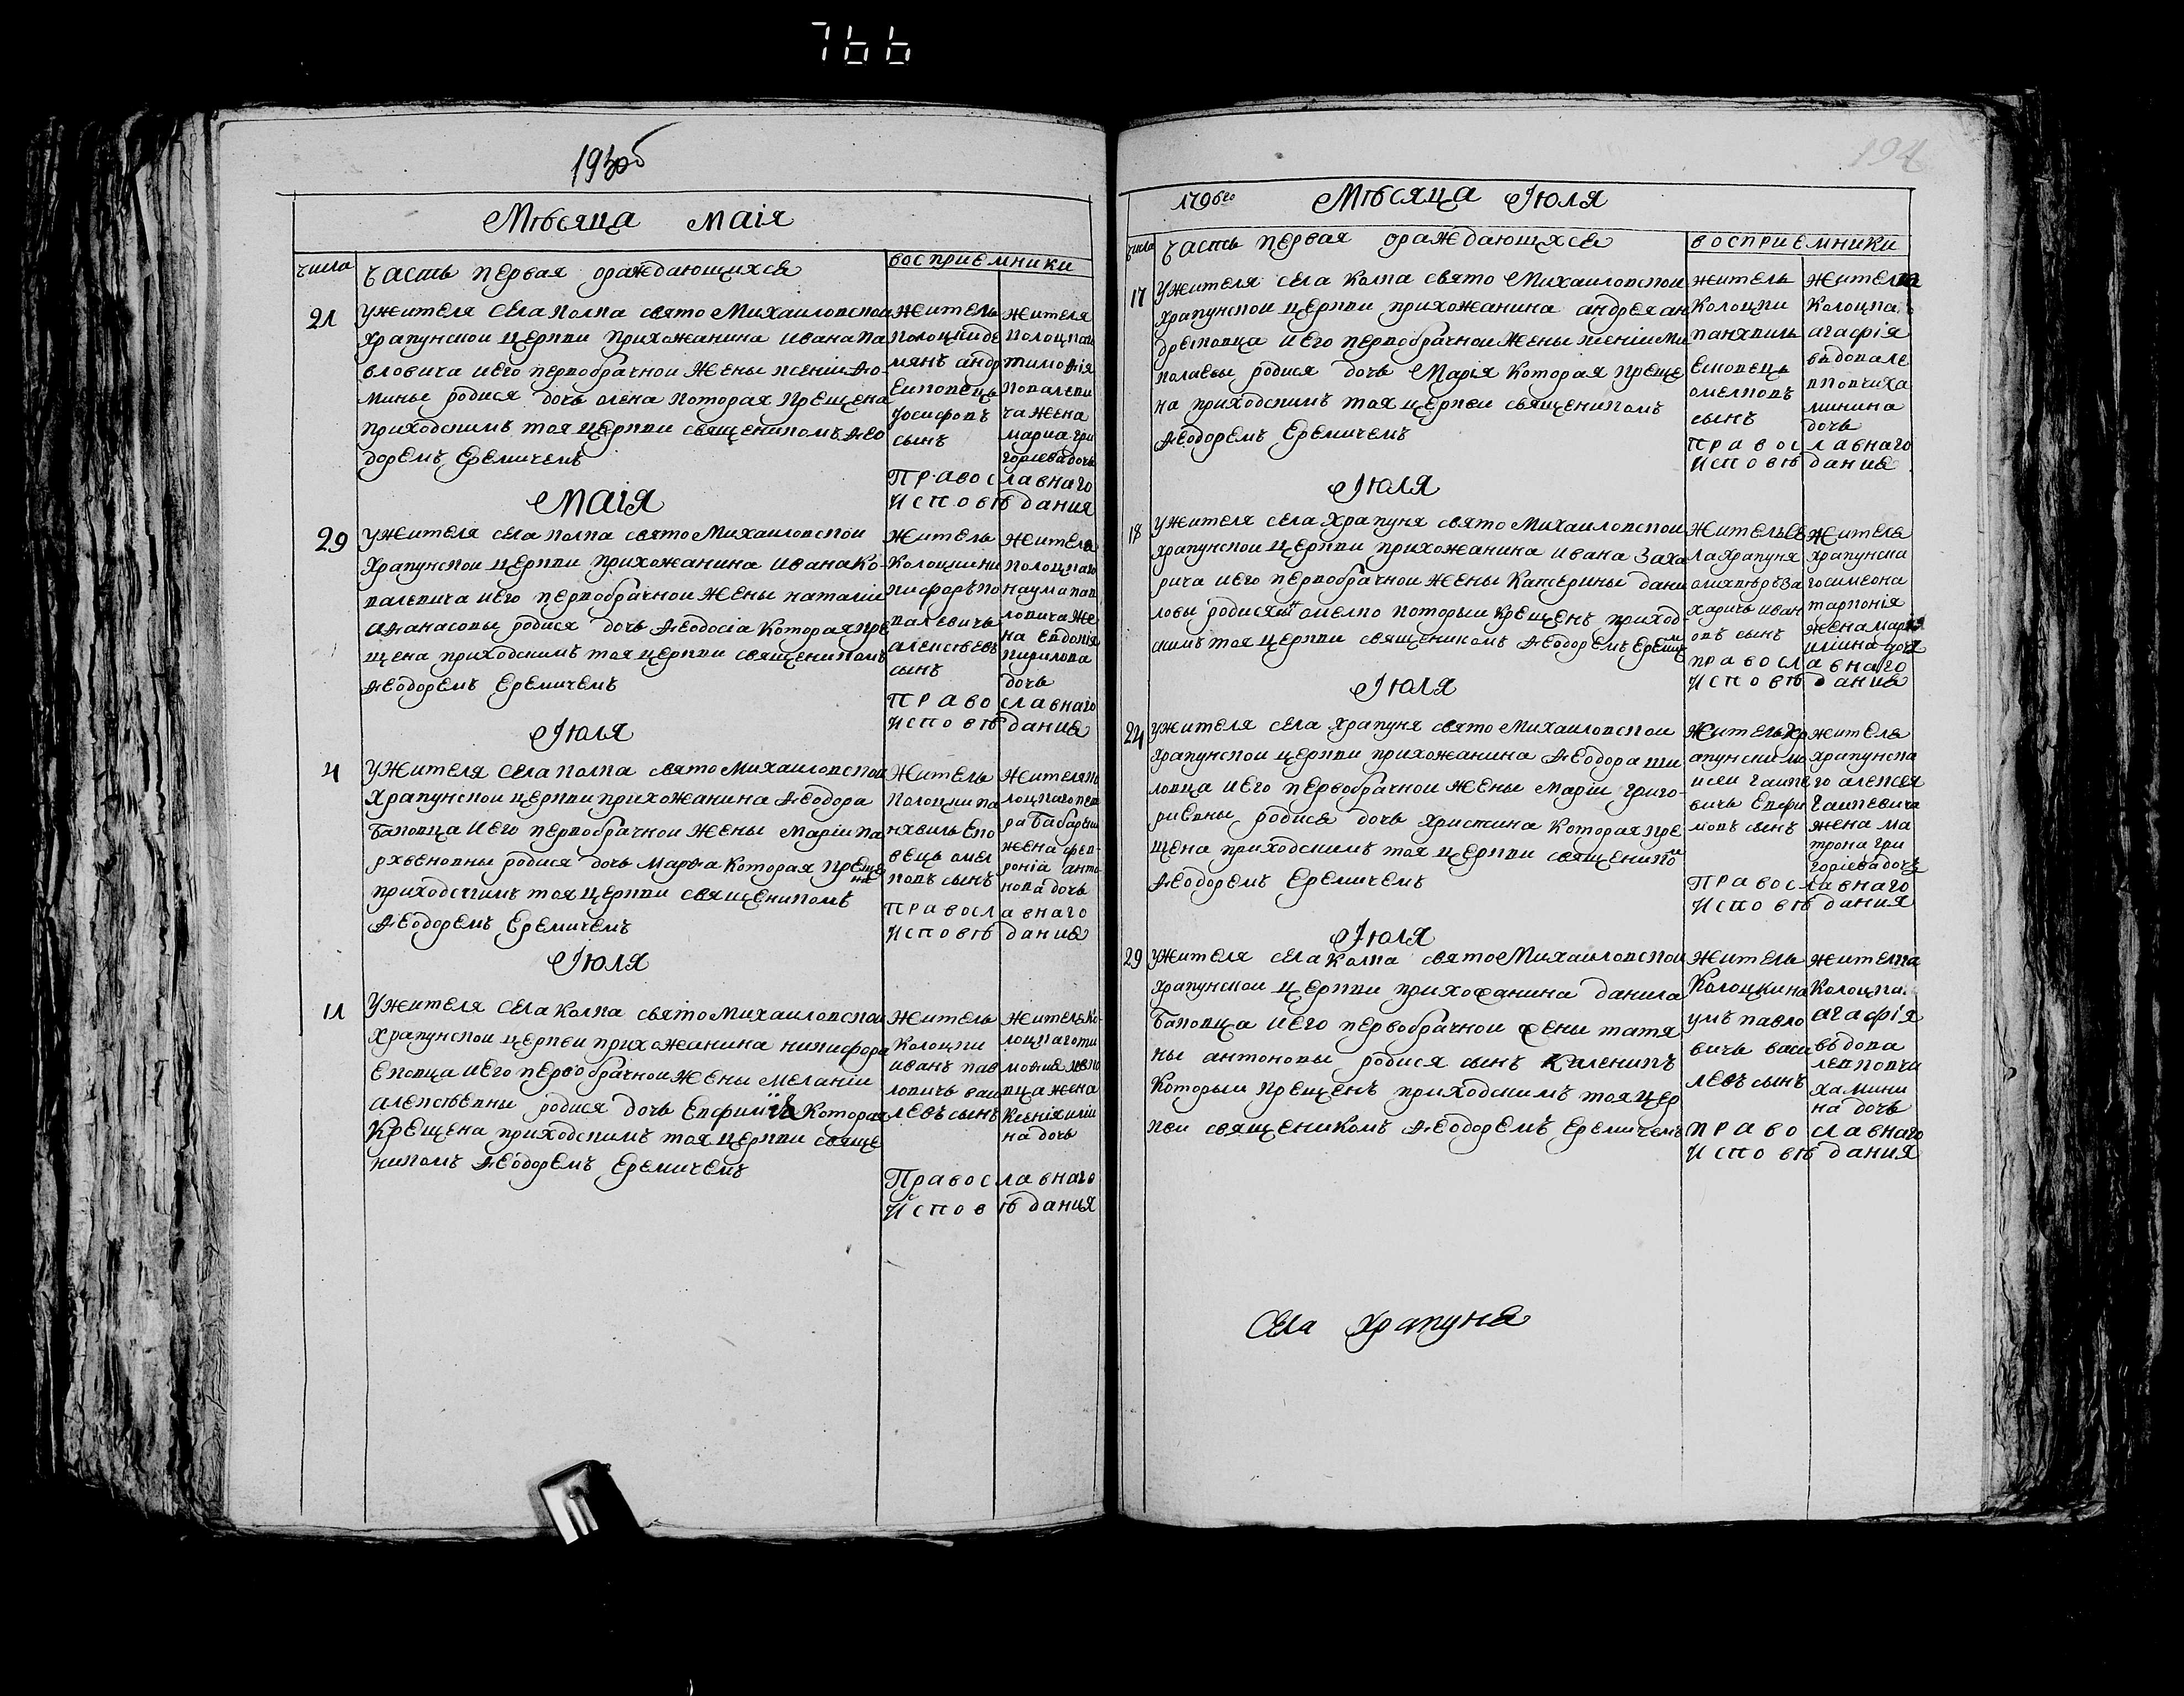 766
193об
Мѣсяца маія
числа
часть первая ораждающихся
восприемники
21
Ужителя села Колпа свято Михаиловской
Храпунской церкви прихожанина ивана па
вловича иего первобрачной жены ксеніи Ѳо
мины родися дочь олена которая крещена
приходскимъ тоя церкви священикомъ Ѳео
доремъ Еремичемъ
житель
колоцкий де
мянъ андр
Еиковецъ
Іосифовъ
сынъ
жителя
колоцкаго
тимоѳія
ковалеви
ча жена
мариа гри
горіева дочь
Православнаго
Исповѣдания
Маія
29
Ужителя села колпа свято Михаиловской
Храпунской церкви прихожанина ивана Ко-
валевича иего первобрачной жены наталіи
аѳанасовы родися дочь Ѳеодосіа Которая кре
щена приходскимъ тоя церкви священикомъ
Ѳеодоремъ Еремичемъ
житель
Колоцки ни
кифоръ ко
валевичь
алексѣевъ
сынъ
жителя
колоцкаго
наума пав
ловича же
на евдокія
кирилова
дочь
Православнаго
исповѣдания
Іюля
4
Ужителя села колпа свято Михаиловской
Храпунской церкви прихожанина Ѳеодора
баковца иего первобрачной жены маріи па
рхвеновны родися дочь марѳа которая креще
на
приходскимъ тоя церкви священикомъ
Ѳеодоремъ Еремичемъ
Житель
Колоцки па
нхвиль Ено
вець омел
ковъ сынъ
жителя ко
лоцкаго пет
ра
жена фев-
роніа анто
нова дочь
Православнаго
исповѣдания
Іюля
11
Ужителя села Колпа свято Михаиловской
Храпунской церкви прихожанина никифора
Еновца иего первобрачной жены меланіи
алексѣевны родися дочь Евфимія Которая
Крещена приходскимъ тоя церкви свяще
никомъ Ѳеодоремъ Еремичемъ
житель
колоцки
иванъ пав
ловичь васи
левъ сынъ
жителя Ко-
лоцкаго ти
моѳия
вца жена
Ксенія иліи
на дочь
Православнаго
Исповѣдания
194
1796го Мѣсяца Іюля
числа
часть первая ораждающихся
восприемники
17
Ужителя села Колпа свято Михаиловской
Храпунской церкви прихожанина андрея ан
дреиковца иего первобрачной жены ксеніи ми
колаевы родися дочь Марія Которая креще
на приходскимъ тоя церкви священикомъ
Ѳеодоремъ Еремичемъ
житель
Колоцки
панхвиль
Еновець
омелковъ
сынъ
Колоцка
агафія
вдова ле
вковчиха
минина
дочь
православнаго
исповѣдания
Іюля
18
Ужителя села Храпуня свято Михаиловской
Храпунской церкви прихожанина ивана Заха
рича иего первобрачной жены Катерины дани
ловы родися сынъ омелко которыи крещенъ приход-
скимъ тоя церкви священикомъ Ѳеодоремъ Еремичемъ
житель се
ла Храпуня
за
харичь иван
овъ сынъ
жителя
Храпунска
го симеона
жена мария
иліина дочь
православнаго
исповѣдания
Іюля
24
Ужителя села Храпуня свято Михаиловской
Храпунской церкви прихожанина Ѳеодора ши
ловца иего первобрачной жены маріи григо
риевны родися дочь христина Которая кре
щена приходскимъ тоя церкви священико
м
Ѳеодоремъ Еремичемъ
житель Хр
апунски мо
исеи гаике
вичь Евфи
мовъ сынъ
жителя
храпунска
го алексея
гаикевича
жена ма
трона гри
горіева дочь
Православнаго
исповѣдания
Іюля
29
Ужителя села Колпа свято Михаиловской
Храпунской церкви прихожанина данила
баковца иего первобрачной жены татя
ны антоновы родися сынъ каленикъ
Которыи крещенъ приходскимъ тоя цер
кви священикомъ Ѳеодоремъ Еремичемъ
житель
Колоцки на
умъ павло
вичь васи
левъ сынъ
Колоцка
агафія
вѣдова
левковчи
ха мини
на дочь
православнаго
исповѣдания
Села Храпуня